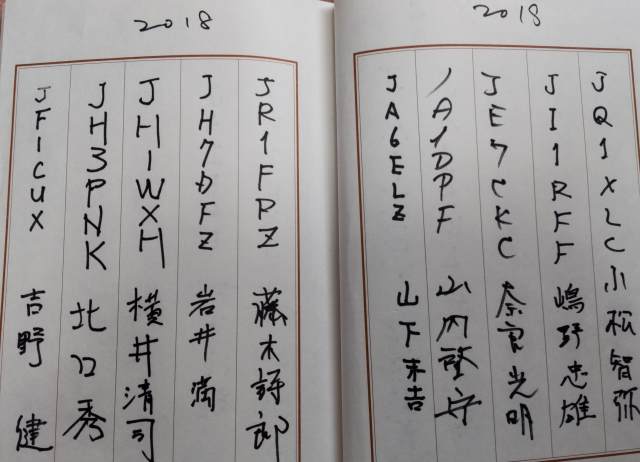 2018
JQ1XLC 小松智弥
JI1RFF 嶋野忠雄
JE7CKC 奈良光明
JA1DPF 山内
JA6ELZ 山下末吉
2018
JR1FRZ 藤木 郎
JH7DFZ 岩井満
JH1WXH 横井清司
JH3PNK 北口秀
JF1CUX 吉野健